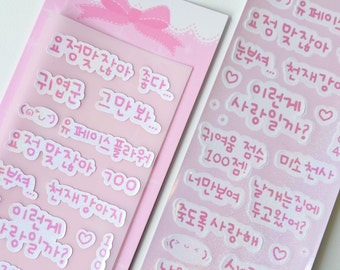 요정맞잖아
좋다...
귀엽군
그만 봐...
유 페이스 플라워
요정 맞잖아
700
눈부셔...
천재강아지
이런게
사랑일까?
요정 맞잖아
눈부셔...
천재강아지
이런게
사랑일까?
귀여움 점수
100점!
미소천사
너만보여
날개는집에
두고왔어?
죽도록 사랑해